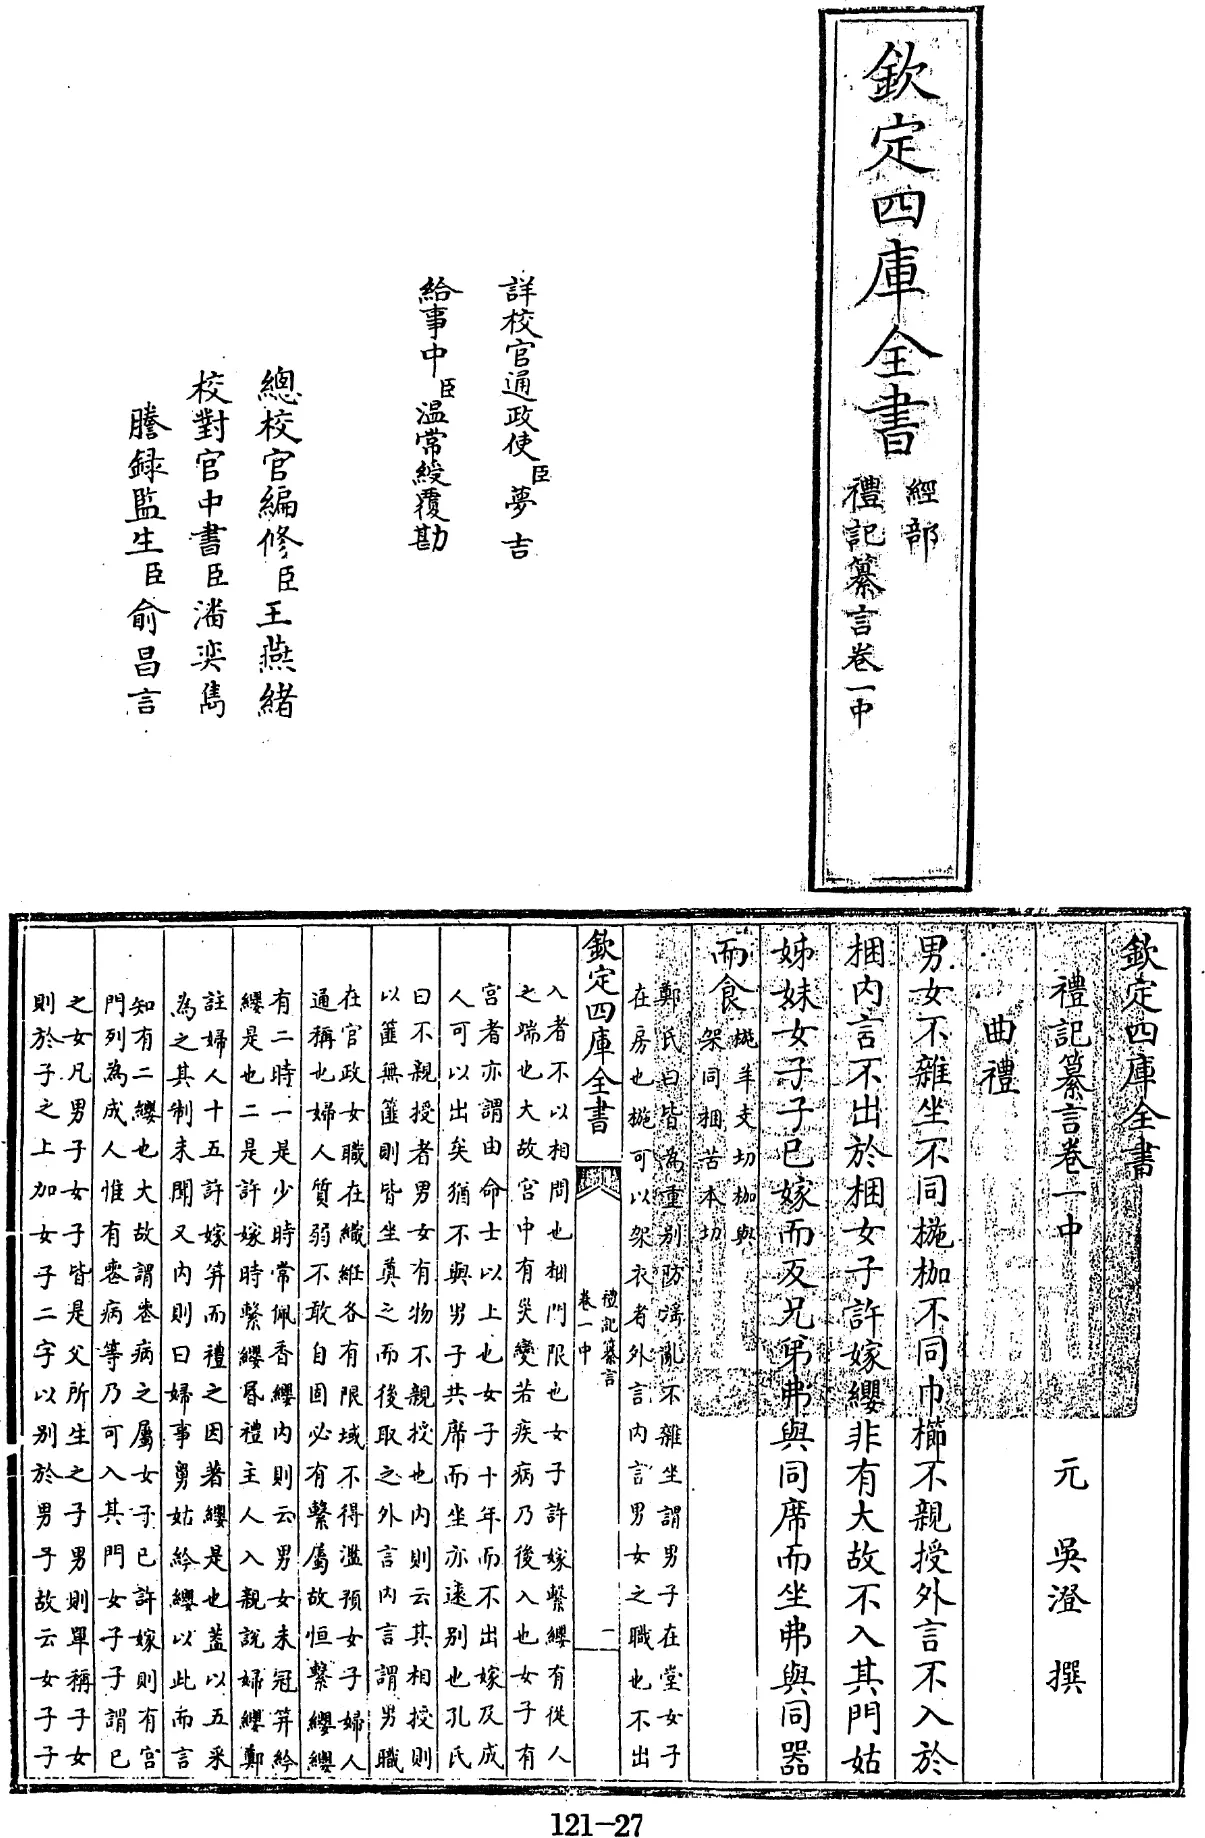 欽定四庫全書
經部
禮記纂言卷一中
詳校官通政使臣夢吉
給事中臣溫常綬覆勘
總校官編修臣王燕緒
校對官中書臣潘奕雋
謄録監生臣俞昌言
欽定四庫全書
禮記纂言卷一中 元 吳澄 撰
曲禮
男女不雜坐不同椸枷不同巾櫛不親授外言不入於
梱内言不出於梱女子許嫁纓非有大故不入其門姑
姊妹女子子已嫁而反兄弟弗與同席而坐弗與同器
而食
椸羊支切枷與
架同梱苦本切
鄭氏曰皆為重别防淫亂不雜坐謂男子在堂女子
在房也椸可以架衣者外言内言男女之職也不出
欽定四庫全書
禮記纂言
卷一中
入者不以相問也梱門限也女子許嫁繫纓有從人
之端也大故宫中有災變若疾病乃後入也女子有
宫者亦謂由命士以上也女子十年而不出嫁及成
人可以出矣猶不與男子共席而坐亦遠别也孔氏
曰不親授者男女有物不親授也内則云其相授則
以篚無篚則皆坐奠之而後取之外言内言謂男職
在官政女職在織紝各有限域不得濫預女子婦人
通稱也婦人質弱不敢自固必有繫屬故恒繫纓纓
有二時一是少時常佩香纓内則云男女未冠笄紟
纓是也二是許嫁時繫纓昏禮主人入親說婦纓鄭
註婦人十五許嫁笄而禮之因著纓是也蓋以五采
為之其制未聞又内則曰婦事舅姑紟纓以此而言
知有二纓也大故謂喪病之屬女子已許嫁則有宫
門列為成人惟有喪病等乃可入其門女子子謂已
之女凡男子女子皆是父所生之子男則單稱子女
則於子之上加女子二字以别於男子故云女子子
121-27